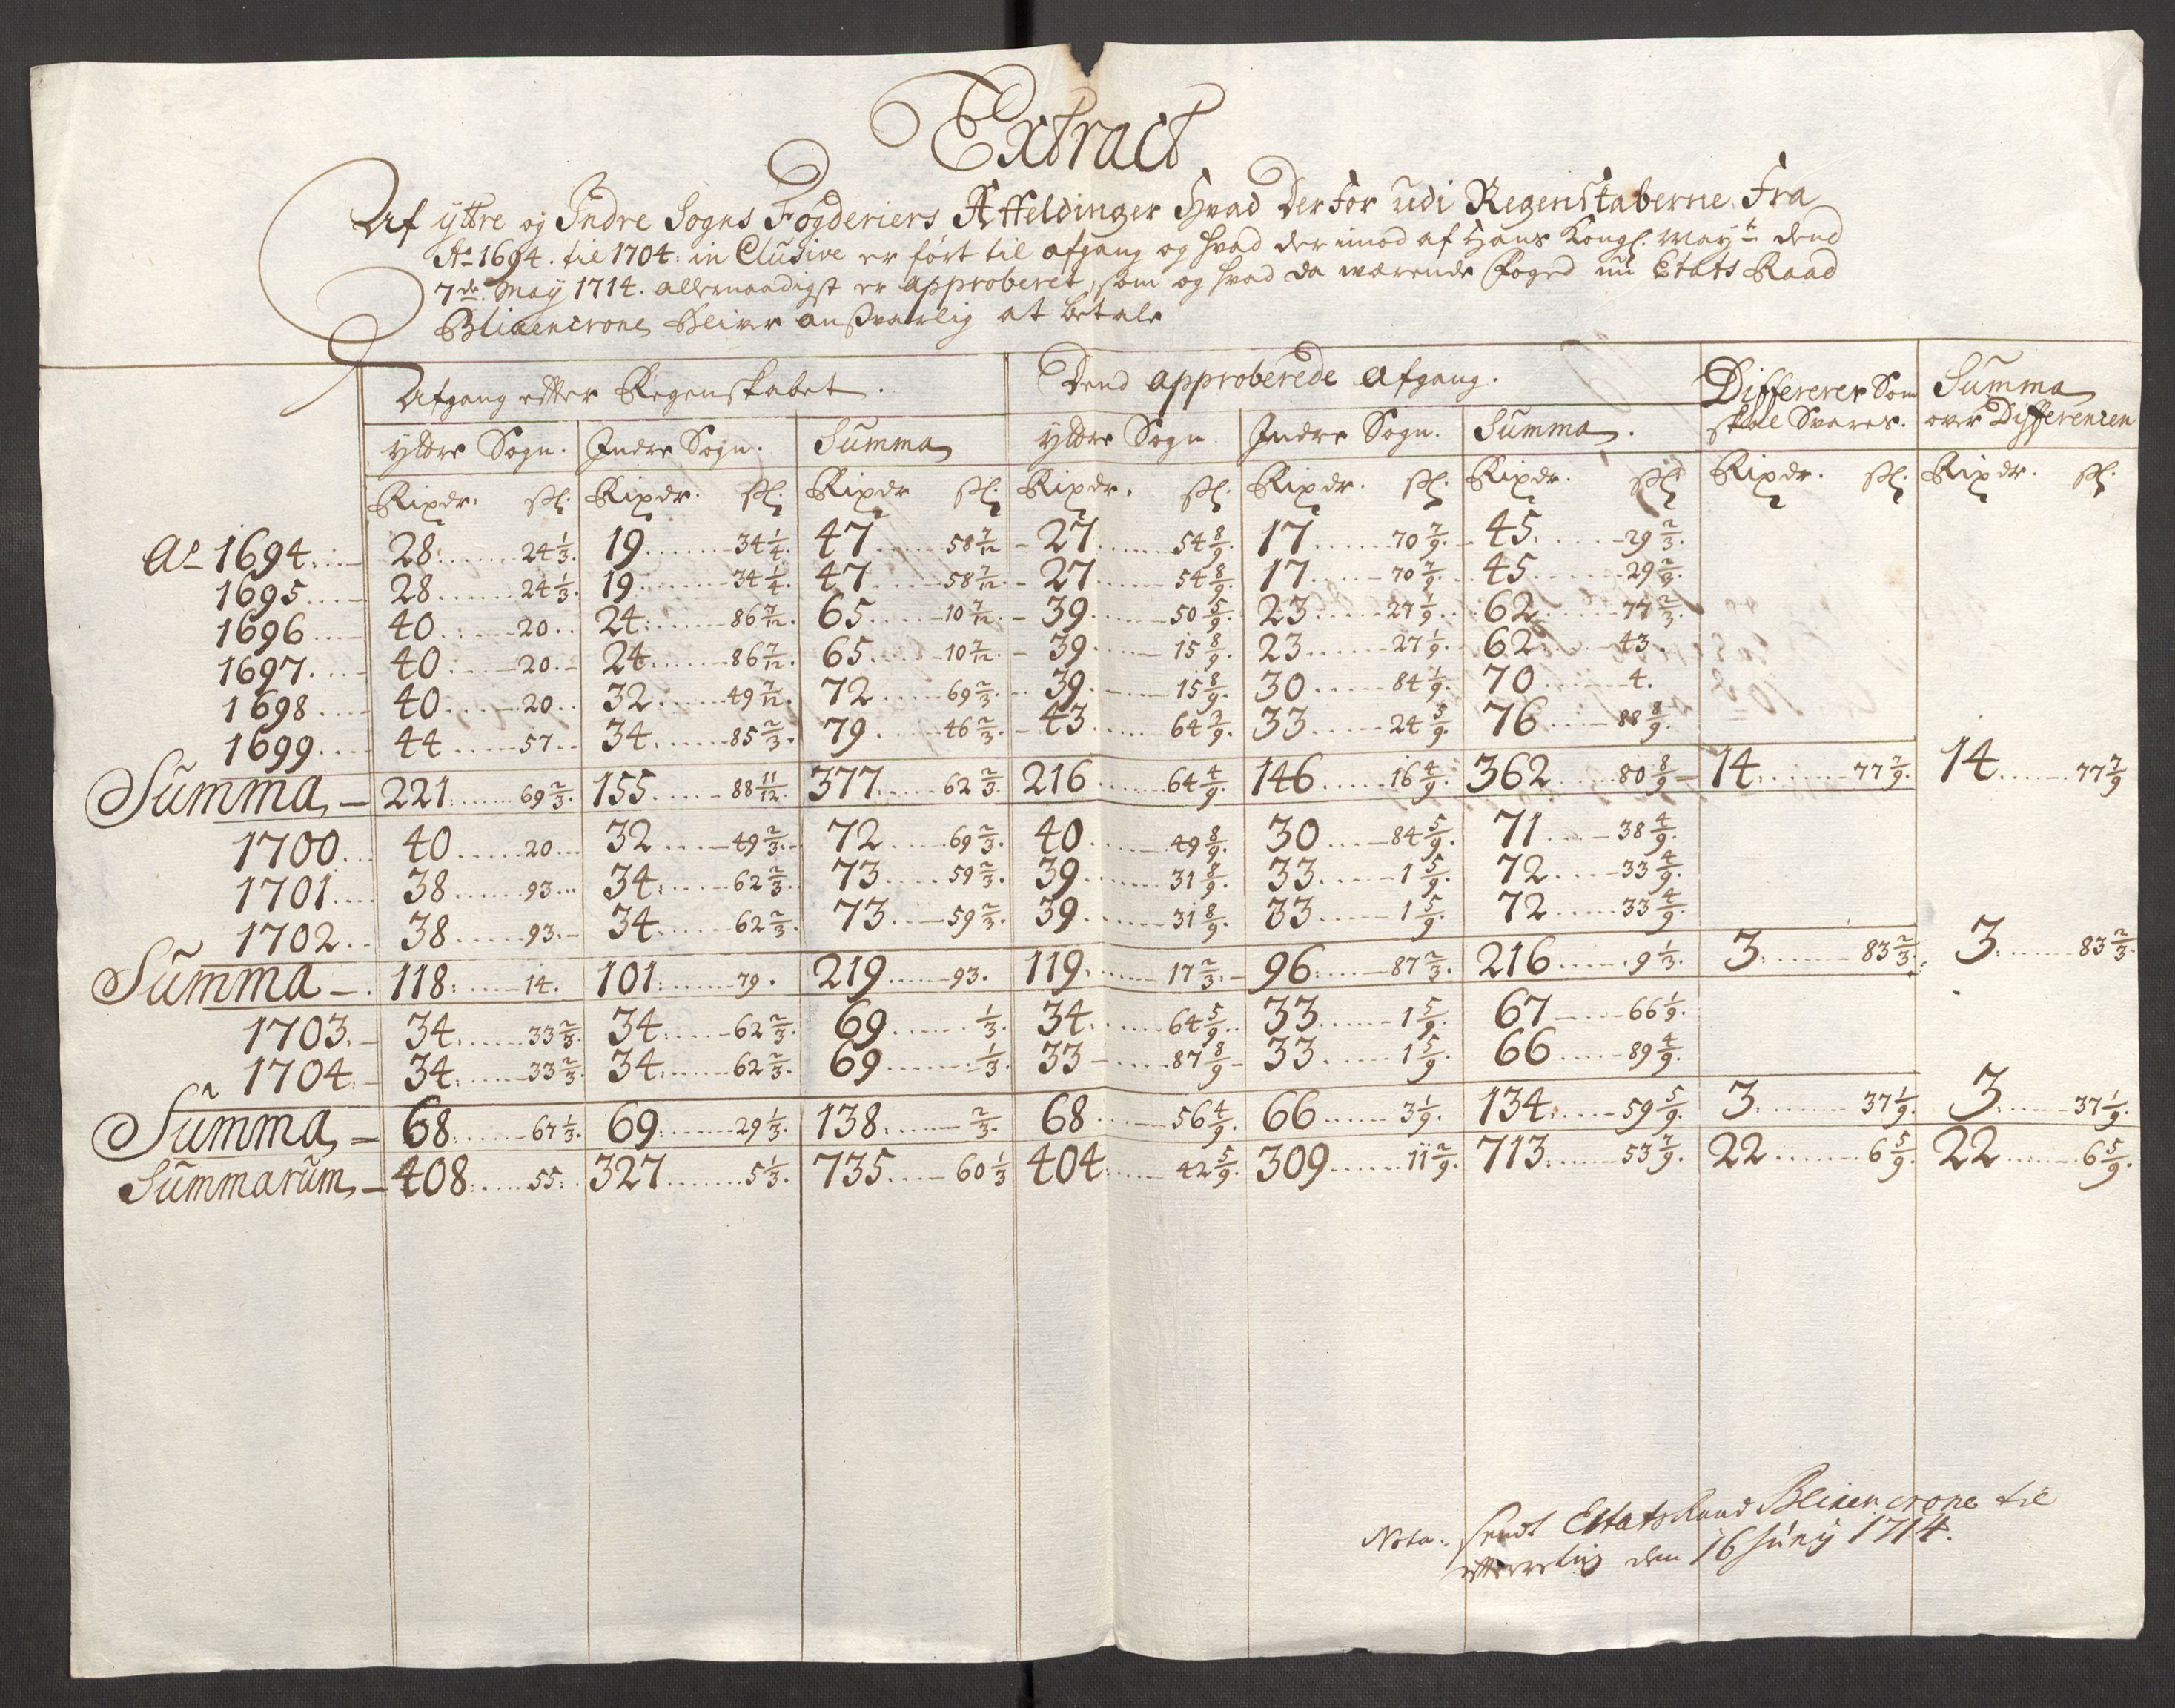 Extract
Af yttre og Indre Sogns Fogderiers Affeldinger Hvad Der For udi Regenskaberne Fra
Ao 1694. til 1704: in Clusive er ført til afgang og hvad der imod af Hans Kongl. Mayt dend
7de May 1714. allernaadigst er approberet, som og hvad da wærende Foged nu Etats Raad
Blixencrone bliver ansvarlig at betale
Afgang effter Regenskabet. Dend approberede Afgang. Differencer Som Summa
skal Svares. over Differencen
yttre Sogn. Indre Sogn. Summa yttre Sogn. Indre Sogn. Summa.
Rixdr. sk: Rixdr. sk: Rixdr sk: Rixdr. sk: Rixdr. sk: Rixdr. sk: Rixdr. sk: Rixdr. sk:
Ao 1694: 28: 24 1/3. 19 34 1/4. 47 58 7/12 27 54 8/9. 17 70 7/9. 45: 29 2/3.
1695 28 24 1/3. 19 34 1/4. 47 58 7/12 27 54 8/9. 17 70 7/9. 45 29 2/3.
1696 40 20 24: 86 7/12. 65 10 7/12. 39 50 5/9. 23 27 1/9. 62 77 2/3.
1697. 40 20 24 86 7/12. 65 10 7/12 39 15 8/9. 23 27 1/9. 62 43.
1698 40 20 32 49 7/12. 72 69 2/3. 39 15 8/9. 30 84 1/9. 70 4.
1699 44 57 34 85 2/3. 79. 46 2/3. 43 64 2/9. 33 24 5/9. 76 88 8/9.
Summa 221: 69 2/3. 155 88 11/12. 377 62 2/3. 216 64 4/9. 146 16 4/9. 362 80 8/9 14: 77 7/9. 14 77 7/9
1700 40 20 32 49 2/3. 72 69 2/3. 40 49 8/9. 30 84 5/9. 71 38 4/9.
1701 38 93 34: 62 2/3. 73 59 2/3. 39 31 8/9. 33 1 5/9. 72 33 4/9.
1702 38 93. 34 62 2/3. 73 59 2/3. 39 31 8/9. 33 1 5/9. 72 33 4/9.
Summa 118: 14. 101: 79. 219 93. 119: 17 2/3. 96: 87 2/3. 216 9 1/3. 3: 83 2/3. 3: 83 2/3.
1703. 34. 33 2/3. 34: 62 2/3. 69 1/3. 34: 64 5/9. 33 1 5/9. 67 66 1/9.
1704: 34: 33 2/3. 34: 62 2/3. 69 1/3. 33 87 8/9 33 1 5/9. 66 89 4/9.
Summa 68: 67 1/3. 69: 29 1/3. 138: 2/3. 68 56 4/9. 66 3 1/9. 134: 59 5/9. 3: 37 1/9. 3: 37 1/9.
Summarum 408: 55: 327 5 1/3. 735 60 1/3 404: 42 5/9. 309 11 2/9. 713: 53 7/9. 22 6 5/9. 22 6 5/9.
Nota: sendt Etats Raad Blixencrone til
efterretning den 16 Juny 1714.